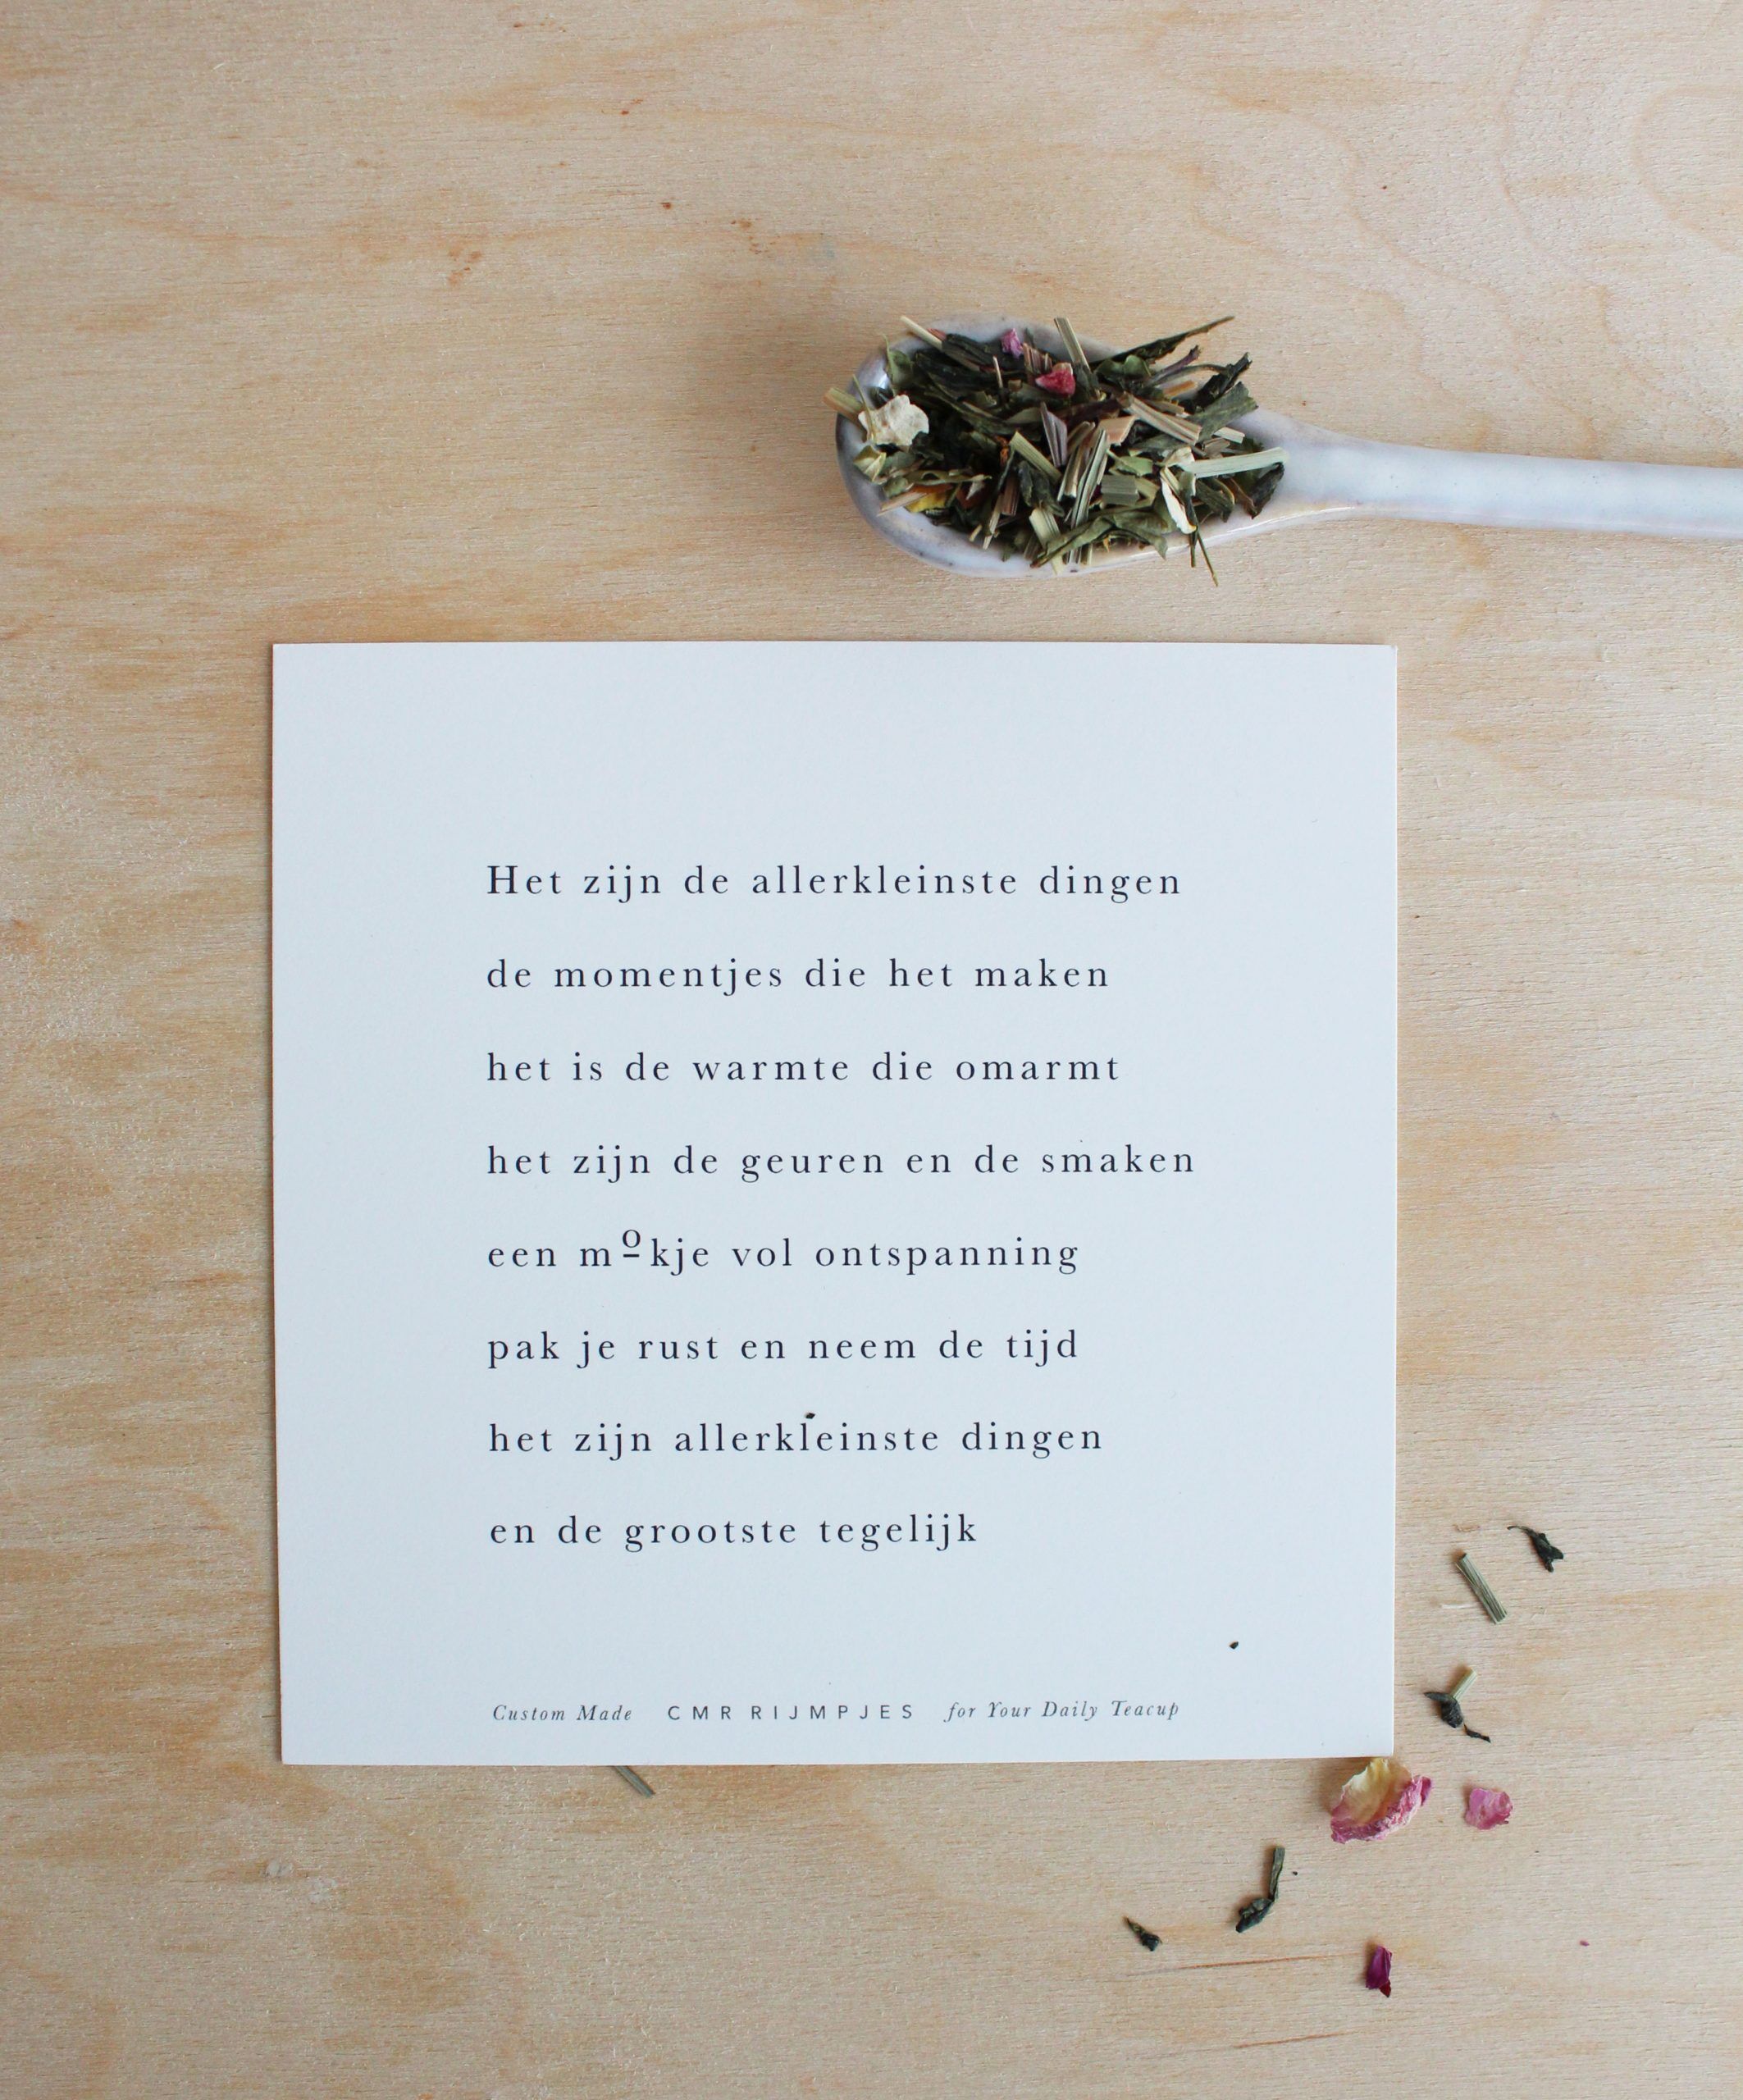 Het zijn de allerkleinste dingen
de momentjes die het maken
het is de warmte die omarmt
het zijn de geuren en de smaken
een mºkje vol ontspanning
pak je rust en neem de tijd
het zijn allerkleinste dingen
en de grootste tegelijk
Custom Made CMR RIJMPJES for Your Daily Teacup